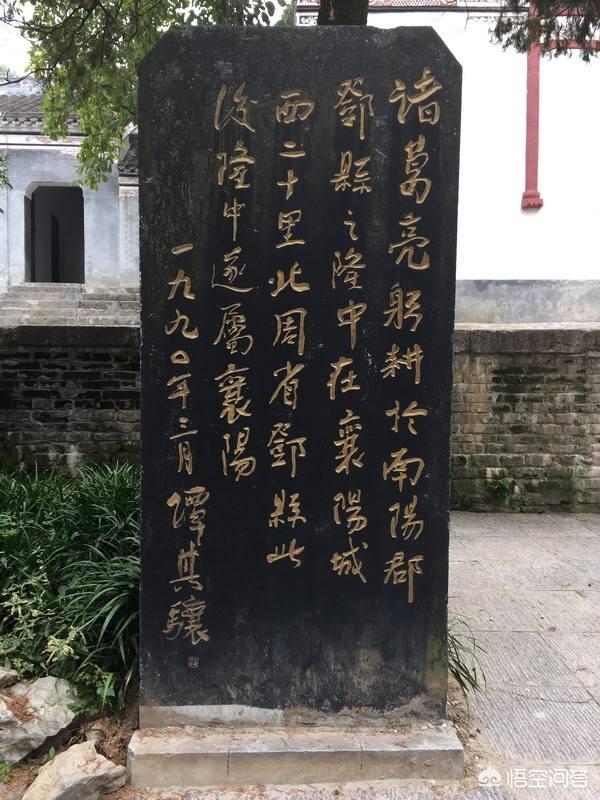 诸葛亮躬耕於南阳郡
鄧縣之隆中在襄陽城
西二十里北周省鄧縣此
後隆中遂屬襄陽
一九九〇年三月 谭其驤
悟空问答